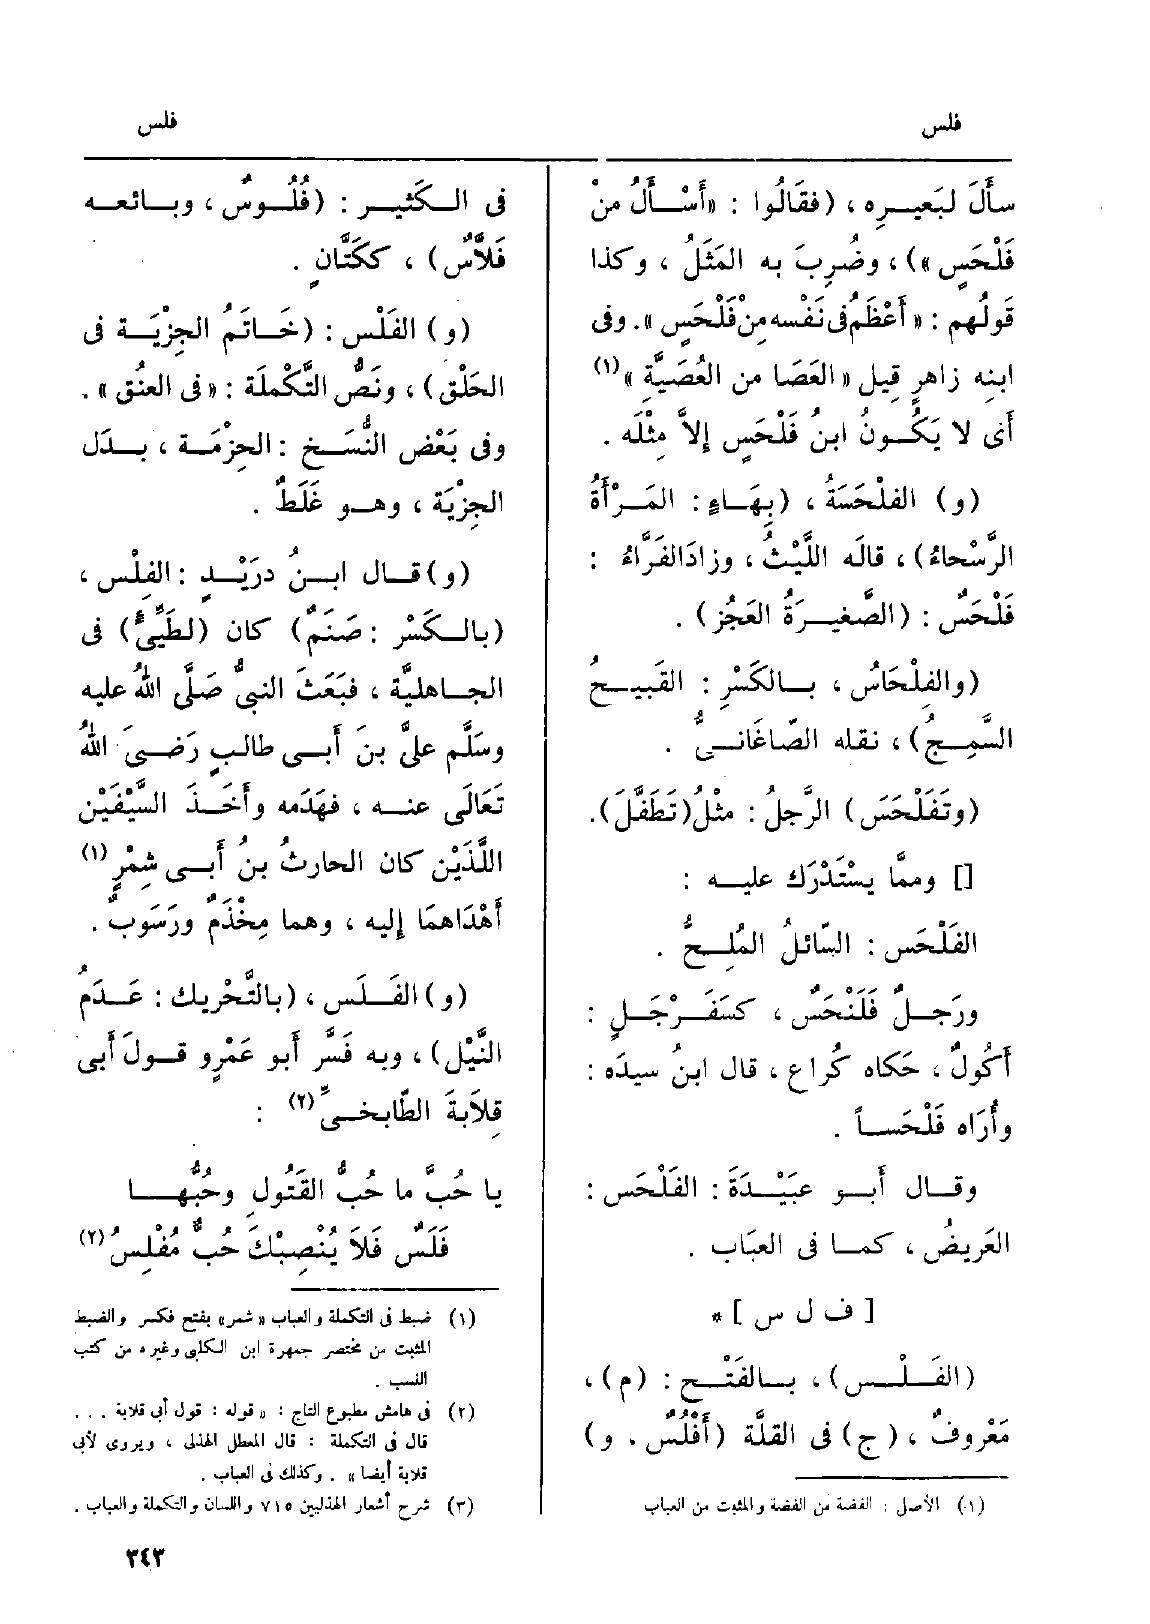 فلس
فلس
سأَلَ لبَعيــره ، (فقَالُوا : «أَسْــأَلُ منْ
فَلْحَسٍ»)، وضُرِبَ به المَثَلُ ، وكذا
قَولُهم : «أَعْظَمُ فى نَفْسه مِنْ فَلْحَسٍ». وفى
ابنِه زاهرٍ قيل «العَصَا من العُصَيَّةِ» (١)
أَى لا يَكُــونُ ابنُ فَلْحَسٍ إِلاَّ مِثْلَه .
(و) الفَلْحَسَةُ ، (بِهَــاءٍ : المَــرْأَةُ
الرَّسْحاءُ) ، قالَه اللَّيْثُ ، وزادَ الفَرَّاءُ :
فَلْحَسٌ : (الصَّغيــرَةُ العَجُز) .
(والفِلْحَاسُ ، بــالكَسْرِ : القَبيــحُ
السَّمِــجُ) ، نقله الصّاغَانــىُّ .
(وتَفَلْحَسَ) الرَّجلُ : مثْلُ (تَطَفَّلَ).
[] وممَّا يسْتَدْرَك عليــه :
الفَلْحَس : السّائلُ المُلــحُّ .
ورَجــلٌ فَلَنْحَسٌ ، كسَفَــرْجَــلٍ :
أَكُولٌ ، حَكاه كُراع ، قال ابنُ سيدَه :
وأُرَاه فَلْحَســاً .
وقــال أَبــو عبَيْــدَةَ : الفَلْحَس :
العَريضُ ، كمــا فى العبَاب .
[ ف ل س ] *
(الفَــلْــس) ، بــالفَتْــح : (م) ،
مَعْروفٌ ، (ج) فى القلَّة (أَفْلُسٌ . و)
(١) الأصل : الفضة من الفضة والمثبت من العباب
فى الــكَثيــر : (فُلُــوسٌ ، وبــائعــه
فَلاَّسٌ) ، ككَتَّانٍ .
(و) الفَلْس : (خَــاتَمُ الجِزْيَــة فى
الحَلْق) ، ونَصُّ التَّكْملَة : «فى العنُق» .
وفى بَعْض النُّسَــخ : الحِزمَــة ، بــدَل
الجِزْيَة ، وهــو غَلَطٌ .
(و) قــال ابــنُ درَيْــدٍ : الفِلْس ،
(بالــكَسْر : صَنَمٌ) كان (لطَيِّئٍ) فى
الجــاهليَّة ، فبَعَثَ النبىُّ صَلَّى اللهُ عليه
وسَلَّم علىَّ بنَ أَبــى طالبٍ رَضــىَ اللهُ
تَعَالَى عنــه ، فهَدَمه وأَخَــذَ السَّيْفَيْن
اللَّذَيْن كان الحارثُ بنُ أَبــى شِمْرٍ (١)
أَهْدَاهمَا إِليه ، وهما مِخْذَمٌ ورَسوبٌ .
(و) الفَــلَس ، (بالتَّحْريك : عَــدَمُ
النَّيْل) ، وبه فَسَّر أَبو عَمْرٍو قــولَ أَبى
قِلاَبَةَ الطّابخــىِّ (٢) :
يا حُبَّ ما حُبُّ القَتُولِ وحُبُّهــا
فَلَسٌ فَلاَ يُنْصِبْكَ حُبٌّ مُفْلِسُ (٢)
(١) ضبط فى التكملة والعباب «شمر» بفتح فكسر والضبط
المثبت من مختصر جمهرة ابن الكلبى وغيره من كتب
النسب .
(٢) فى هامش مطبوع التاج : «قوله : قول أبى قلابة ...
قال فى التكملة : قال المعطل الهذلى ، ويروى لأبى
قلابة أيضا» . وكذلك فى العباب .
(٣) شرح أشعار الهذليين ٧١٥ واللسان والتكملة والعباب .
٣٤٣